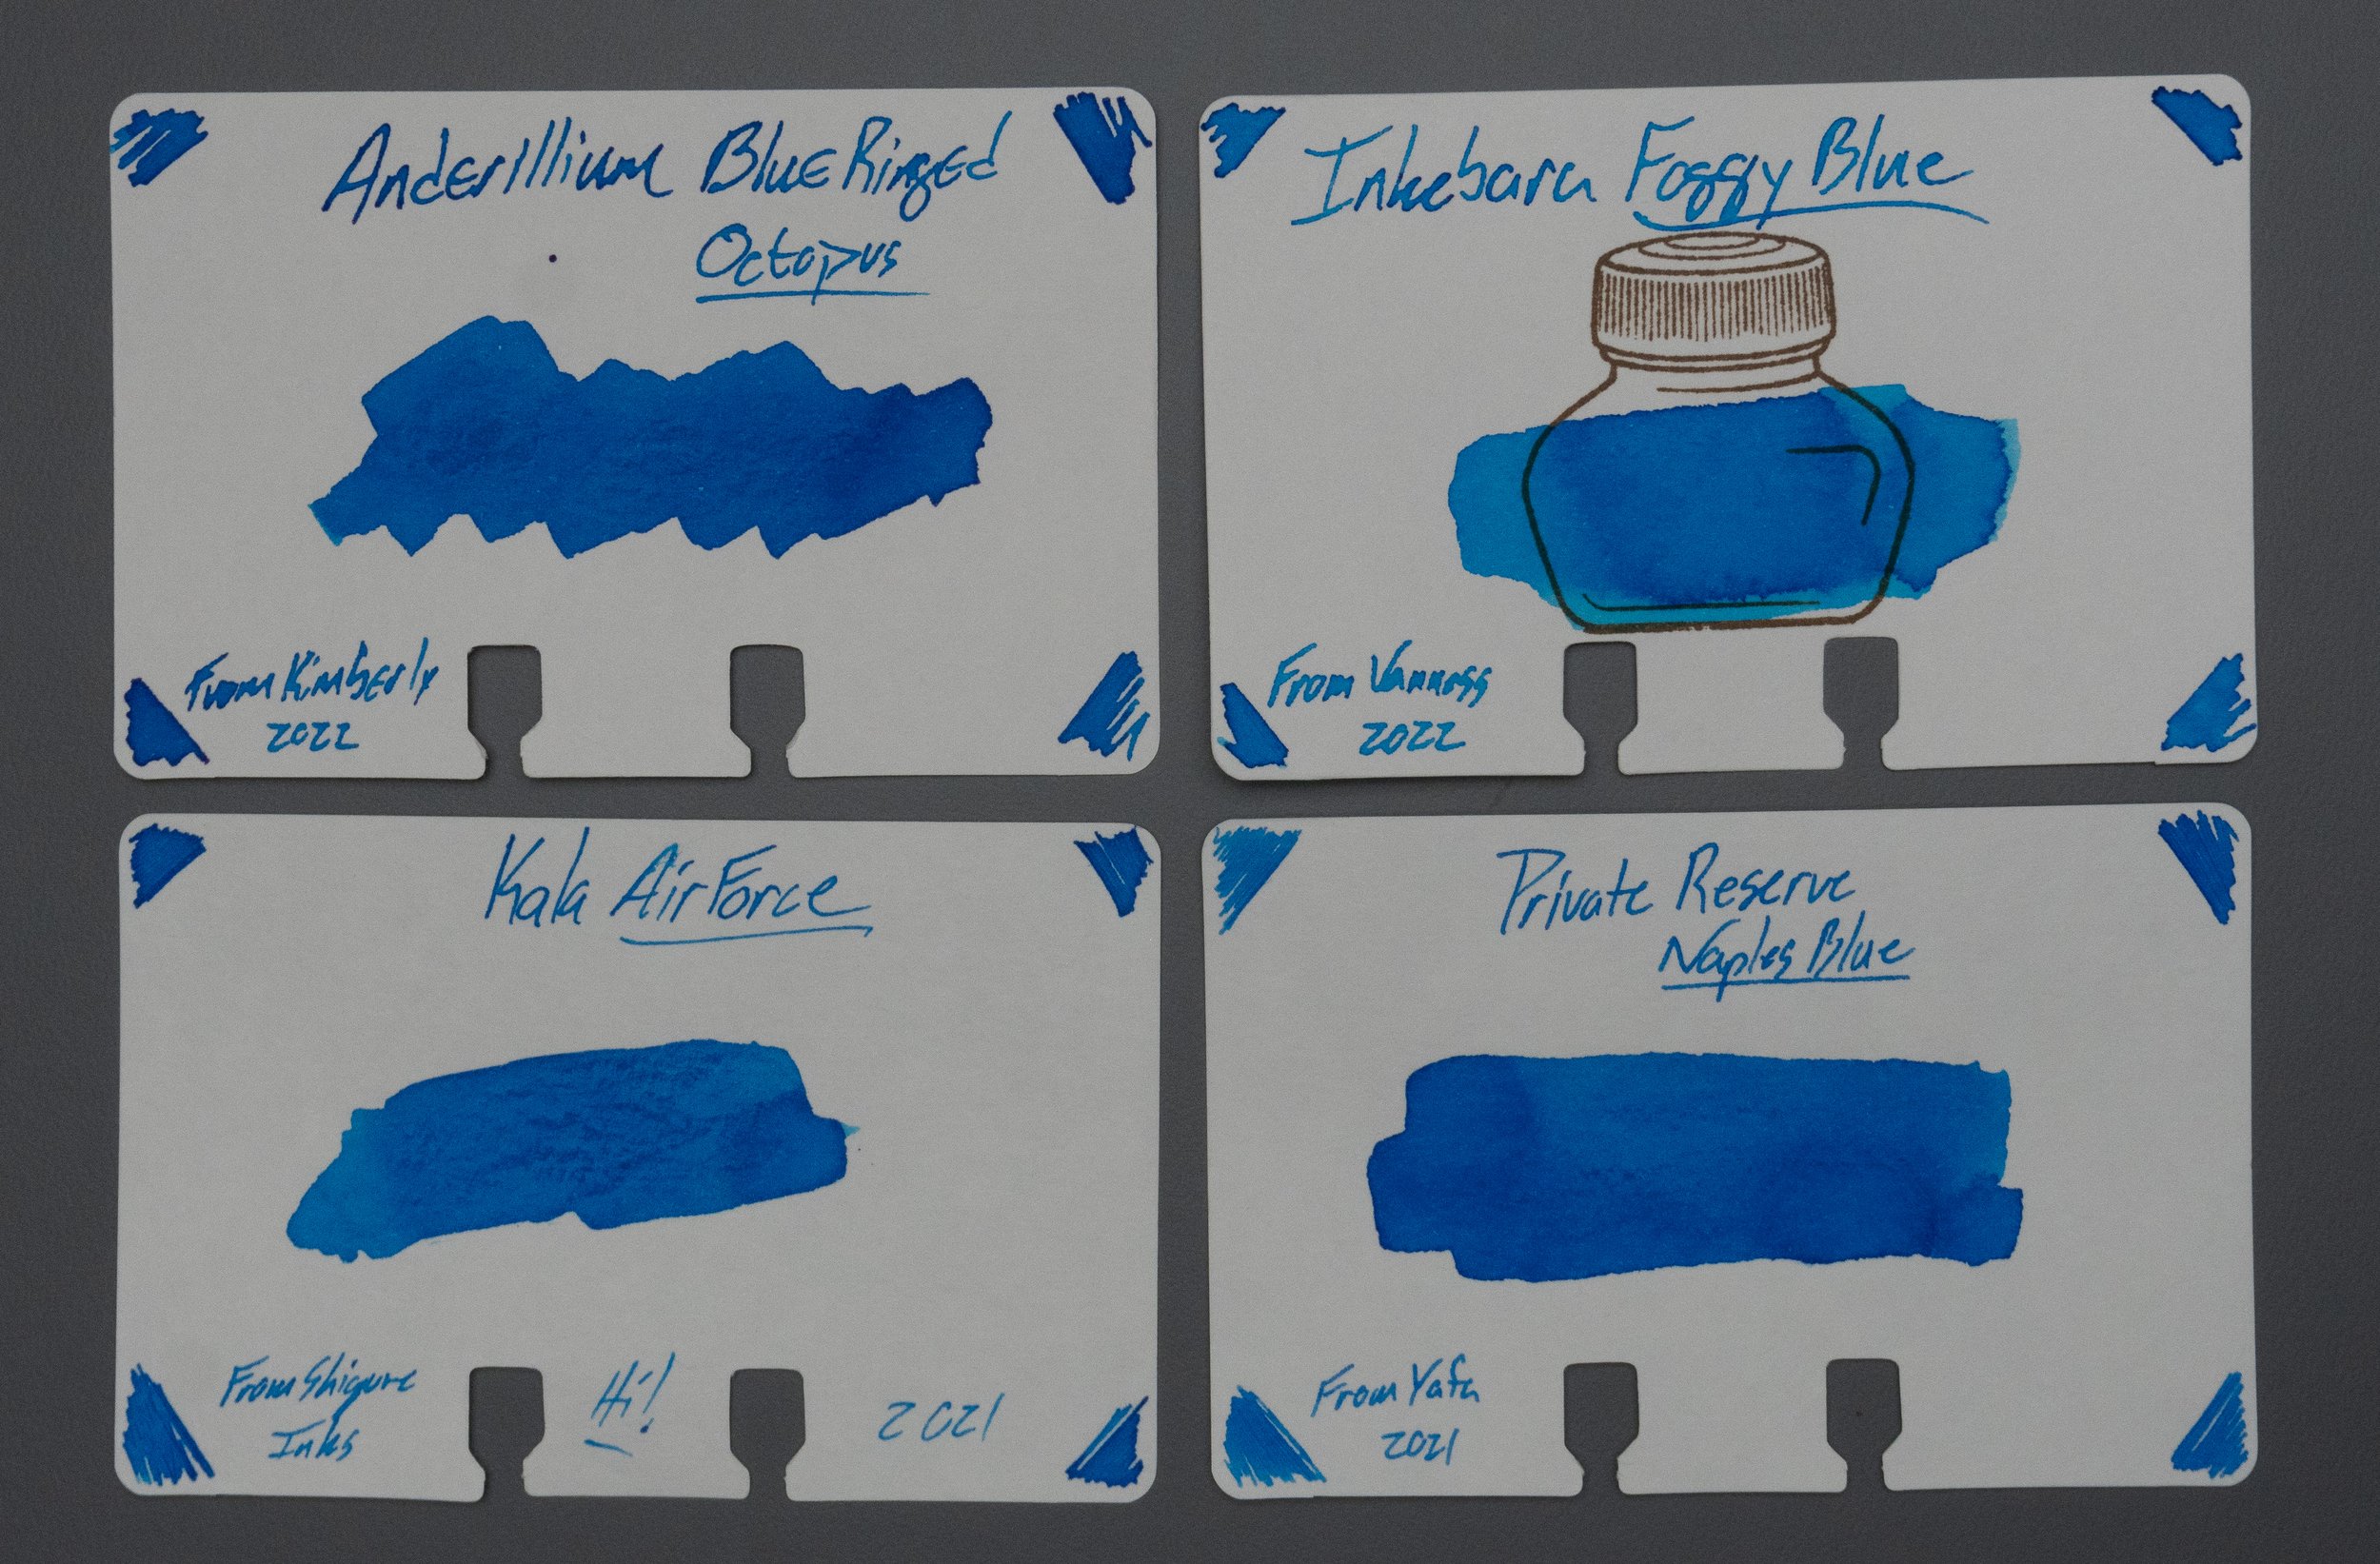 Anderillium Blue Ringed
Octopus
From Kimberly
2022
Inkebara Foggy Blue
From Vanness
2022
Kala Air Force
From Shigure
Inks
Hi!
2021
Private Reserve
Naples Blue
From Yafa
2021